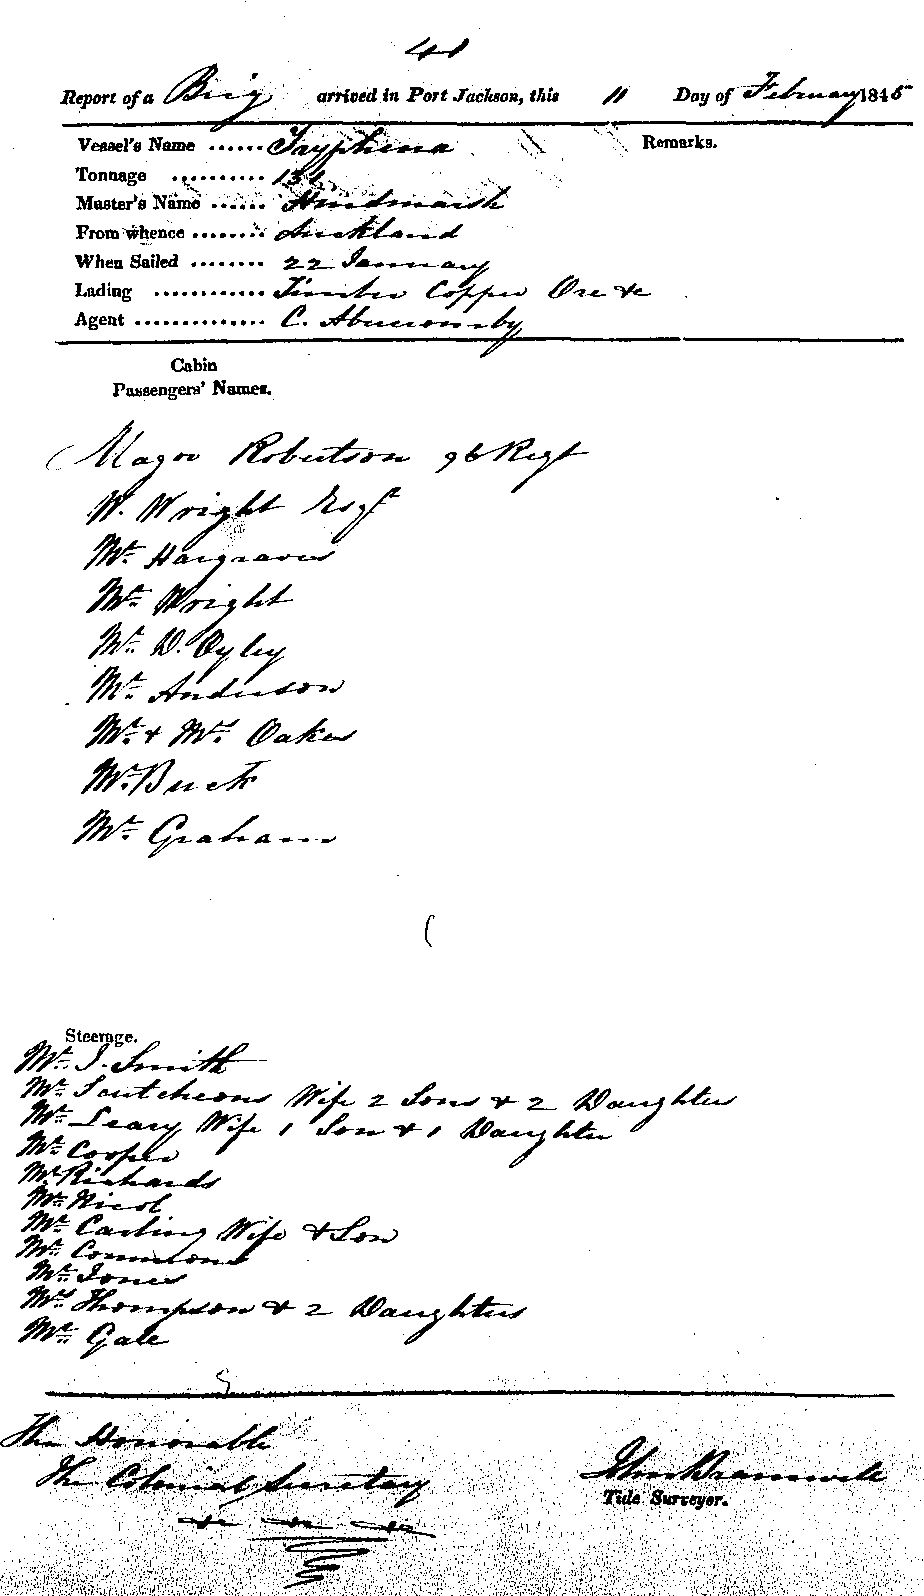 41
Report of a Brig arrived in Port Jackson, this 11 Day of February 1845
Vessel's Name ...... Tryphena
Remarks.
Tonnage .......... 134
Master's Name ...... Hindmarsh
From whence ........ Auckland
When Sailed ........ 22 January
Lading ............ Timber Copper Ore &c
Agent .............. C. Abercromby
Cabin
Passengers' Names.
Magor Robertson 96 Regt
W. Wright Esqr
Mr. Hargraves
Mr. Wright
Mr. D. Oyley
Mr. Anderson
Mr. & Mrs. Oakes
Mr. Buck
Mr. Graham
Steerage.
Mr. J. Smith
Mr. Scutcheons Wife 2 Sons & 2 Daughters
Mr. Leary Wife 1 Son & 1 Daughter
Mr. Cooper
Mr. Richards
Mr. Nicol
Mr. Carling Wife & Son
Mr. Commons
Mr. Jones
Mrs. Thompson & 2 Daughters
Mr. Gale
The Honorable
The Colonial Secretary
&c &c &c
John Bramwell
Tide Surveyor.